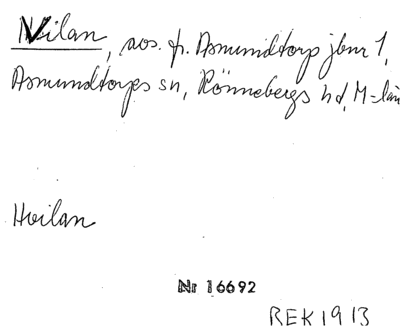 Nilan, avs. fr. Asmundtorp jbnr 1,
Asmundtorps sn, Rönnebergs hd, M-län
Hvilan
Nr 16692
REK 1913